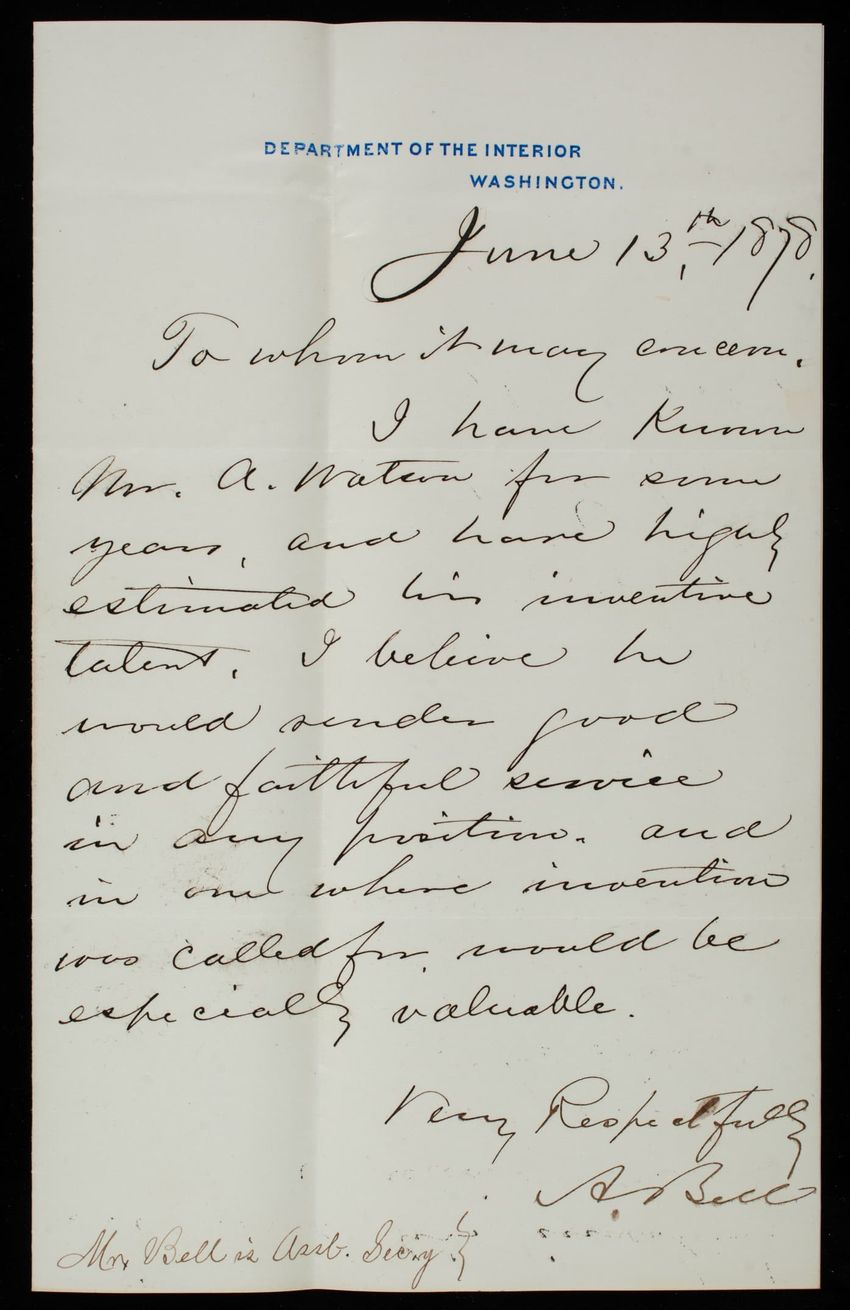 DEPARTMENT OF THE INTERIOR
WASHINGTON.
June 13,th 1878.
To whom it may concern.
I have Known
Mr. A. Watson for some
years, and have highly
estimated his inventive
talent. I believe he
would render good
and faithful service
in any position. and
in one where invention
was called for, would be
especially valuable.
Very Respectfully
A. Bell
Mr. Bell is Asst. Secy }